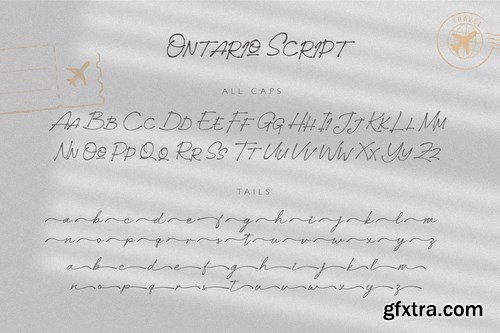 Ontario Script
TRAVEL
ALL CAPS
Aa Bb Cc Dd Ee Ff Gg Hh Ii Jj Kk Ll Mm
Nn Oo Pp Qq Rr Ss Tt Uu Vv Ww Xx Yy Zz
TAILS
a b c d e f g h i j k l m
n o p q r s t u v w x y z
a b c d e f g h i j k l m
n o p q r s t u v w x y z
gfxtra.com